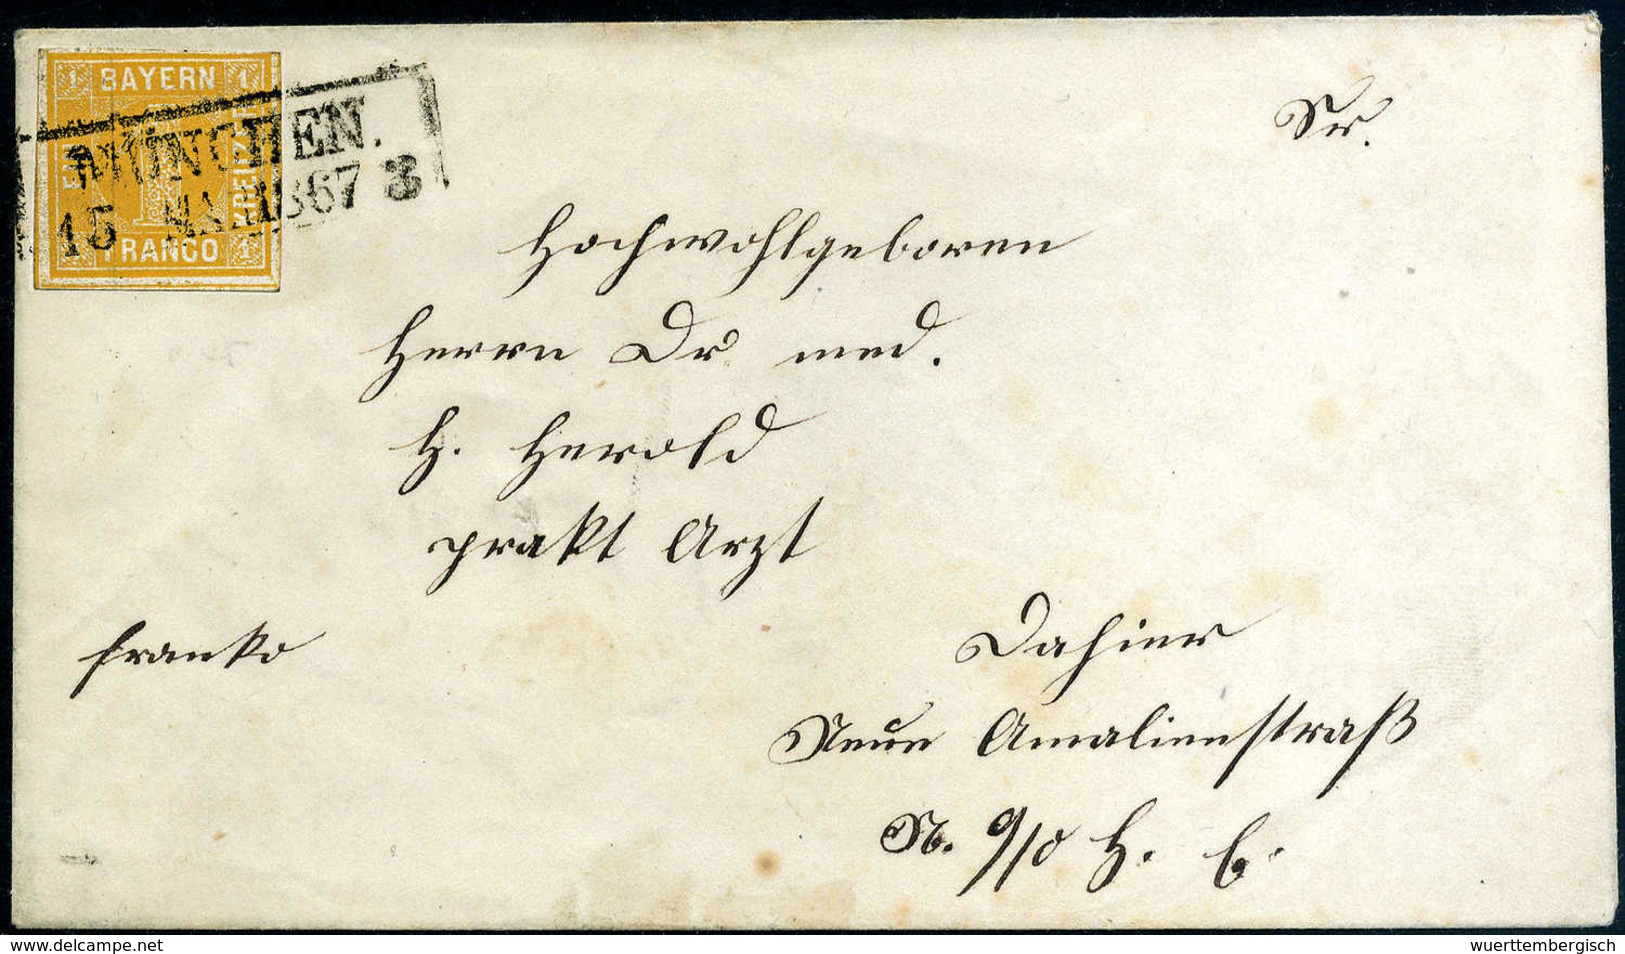 1 BAYERN 1
EIN
KREUZER
FRANCO 1
MÜNCHEN.
15 MAI 1867 3
Sr.
Hochwohlgeboren
Herrn Dr med.
H. Herold
prakt Arzt
franko
Dahier
Neue Amalienstraß
N. 9/0 H. b.
www.delcampe.net
wuerttembergisch